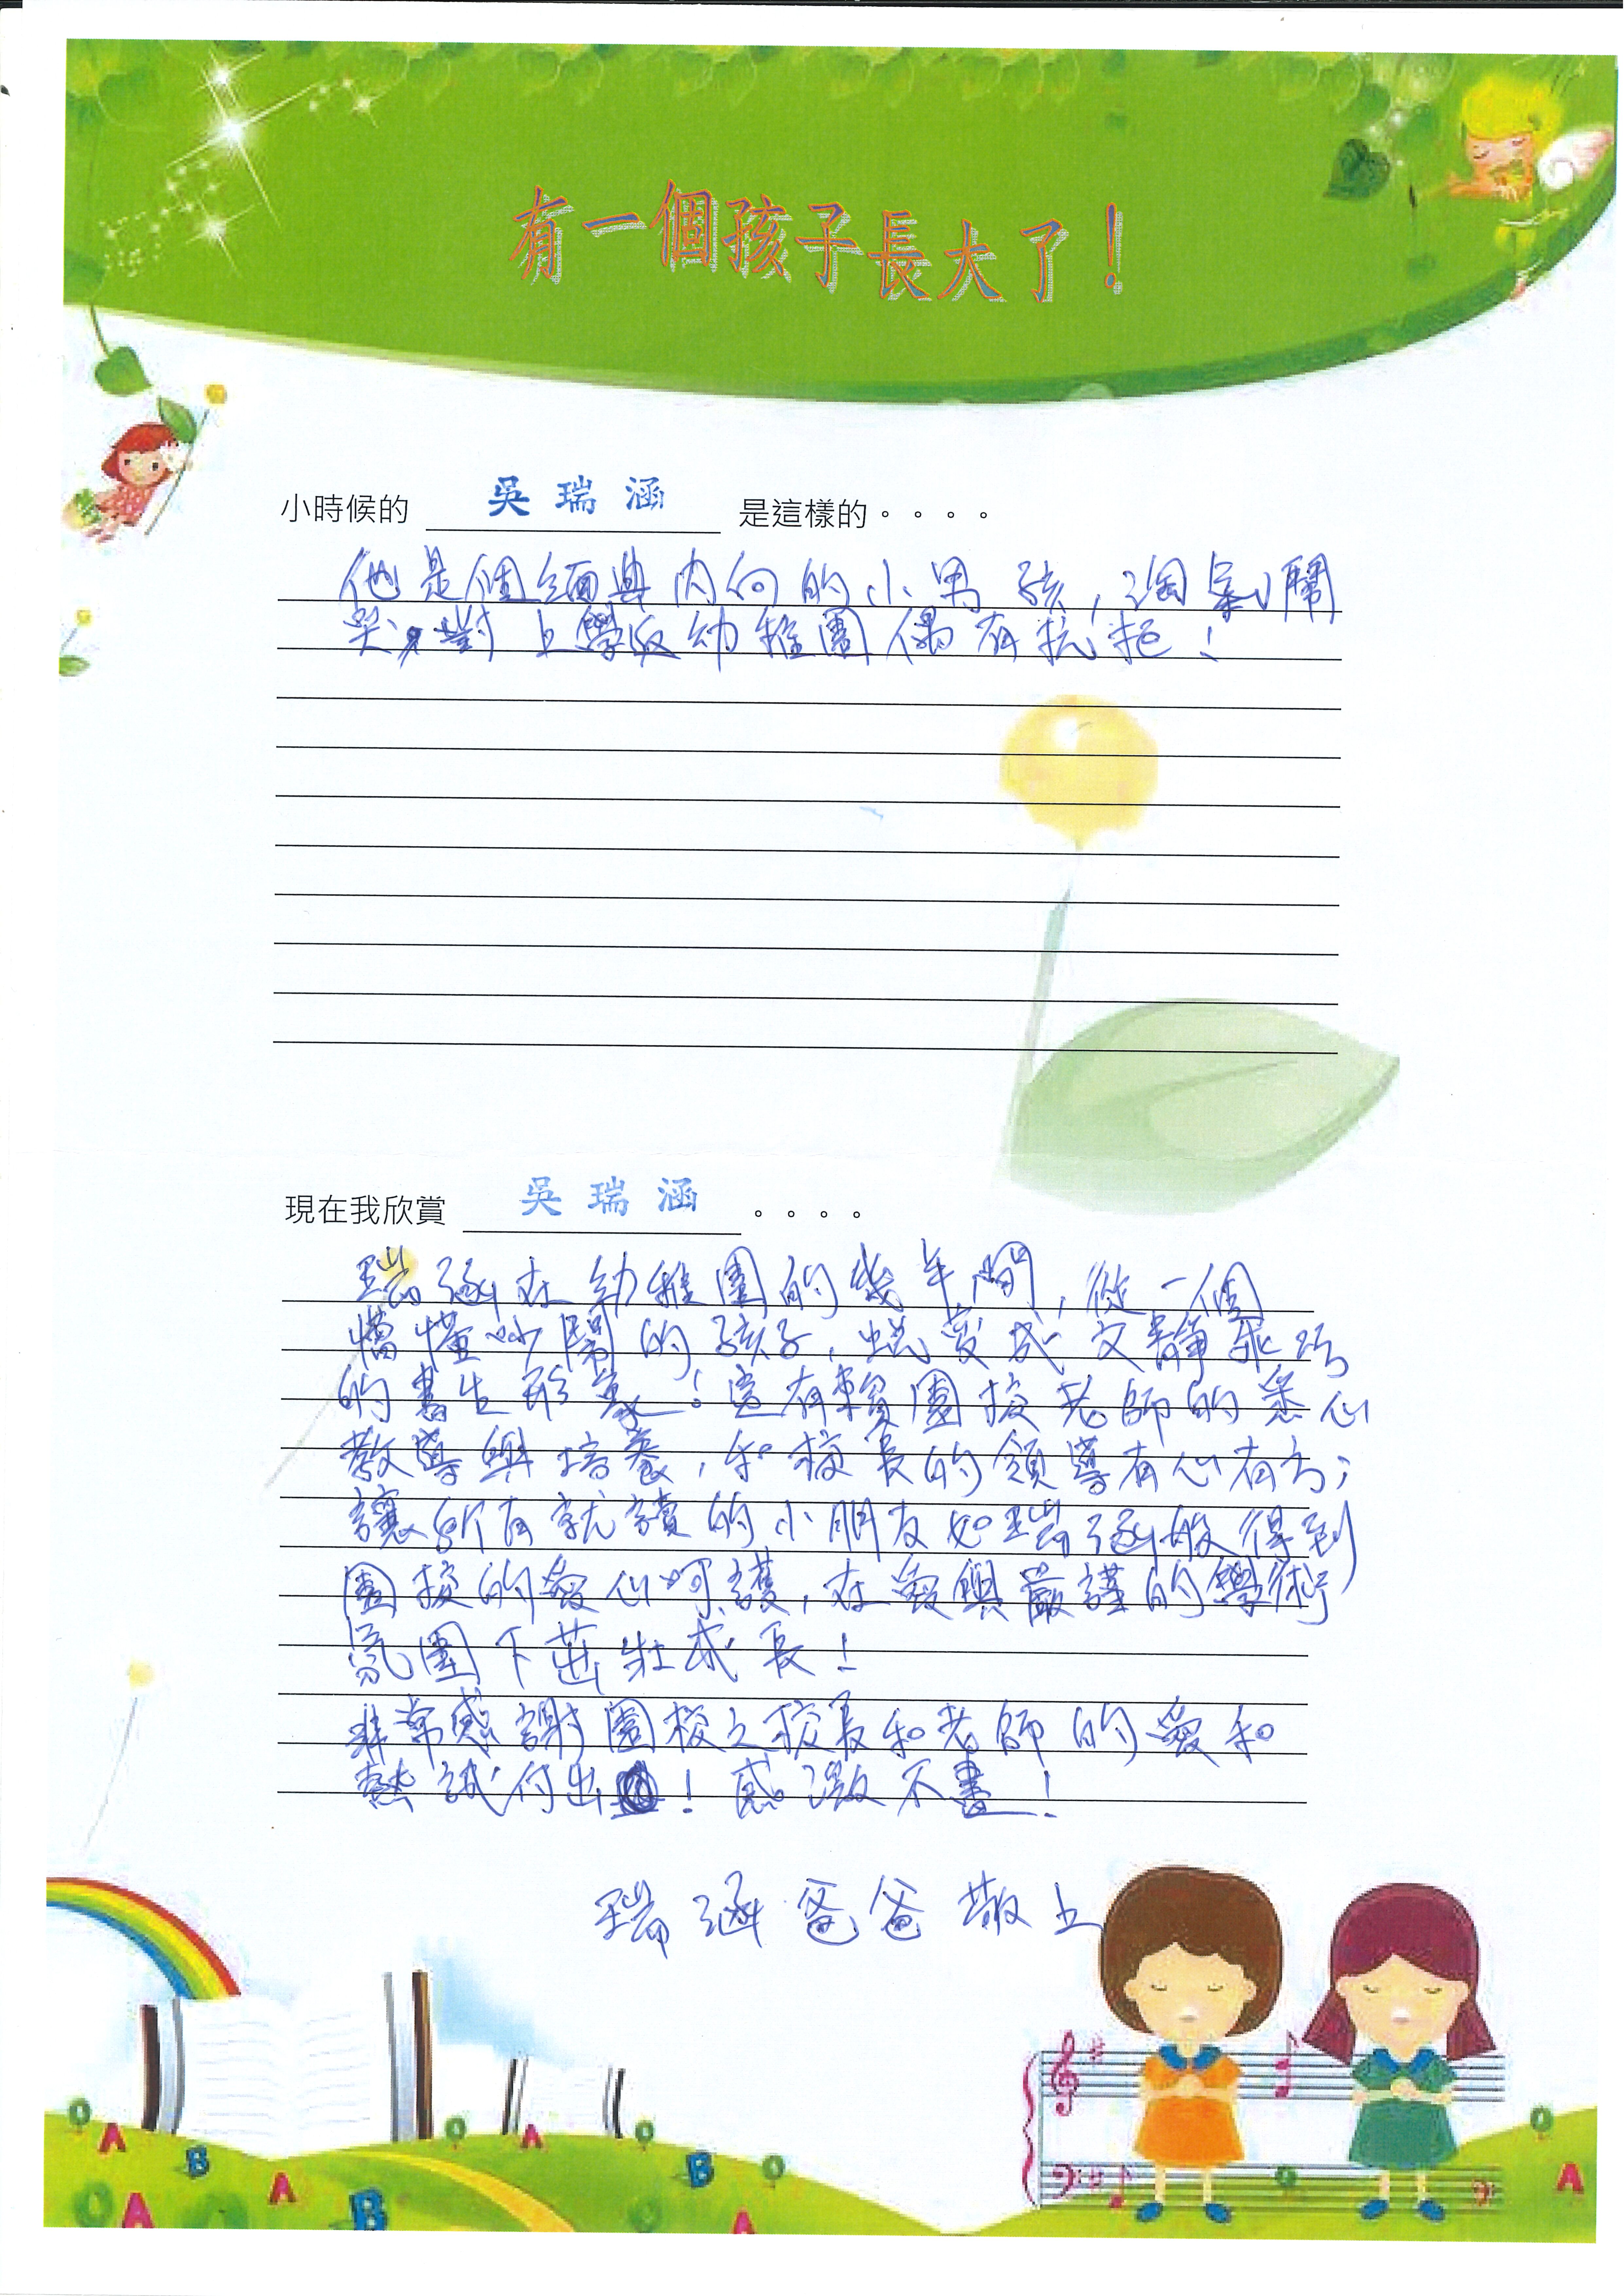 有一個孩子長大了！
小時候的 吳瑞涵 是這樣的。。。。
他是個緬典內向的小男孩，淘氣鬧
哭，對上學區幼稚園偶有抗拒！
現在我欣賞 吳瑞涵 。。。。
瑞涵在幼稚園的幾年間，從一個
懵懂吵鬧的孩子，蛻變成文靜乖巧
的書生形象！這有賴園校老師的悉心
教導與培養，和校長的領導有心有方；
讓所有就讀的小朋友如瑞涵般得到
園校的愛心呵護，在愛與嚴謹的學術
氛圍下茁壯成長！
非常感謝園校之校長和老師的愛和
熱誠付出！感激不盡！
瑞涵爸爸敬上
A B A B A A B A A